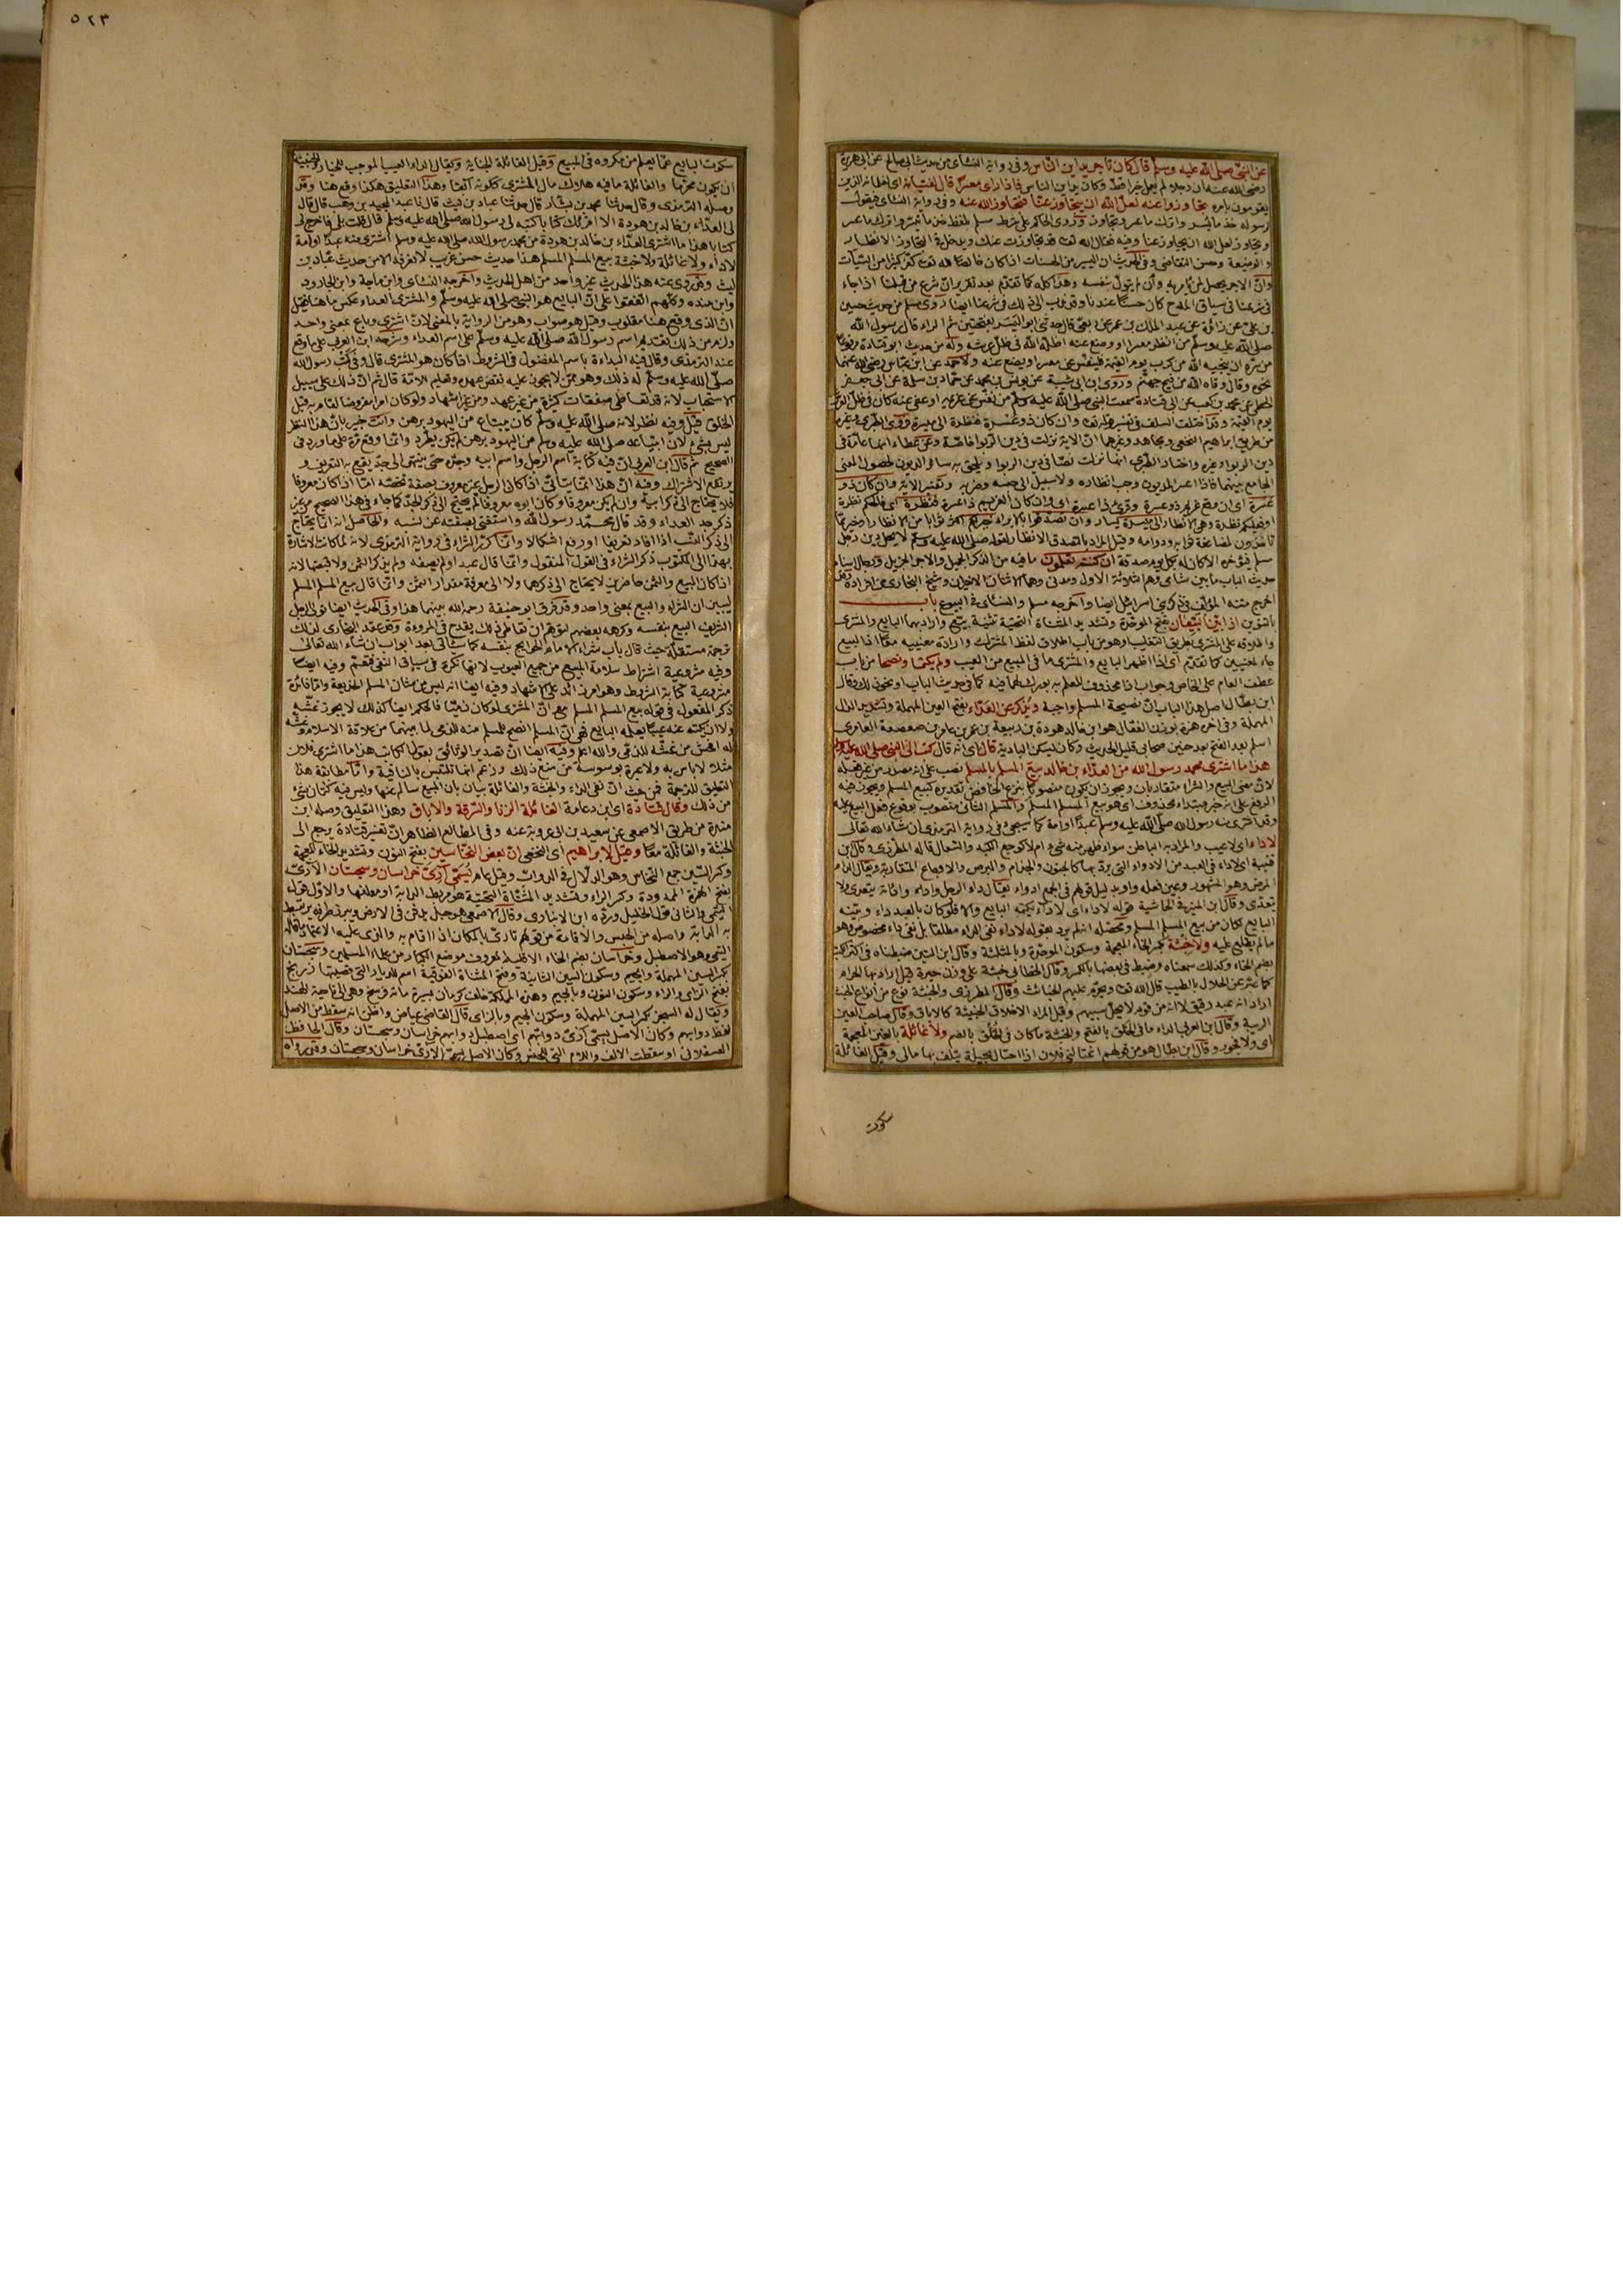 ٥٢٣
عن النبي صلى الله عليه وسلم قال كان تاجر يداين الناس وفي رواية النسائي من حديث ابي صالح عن ابي هريرة
رضي الله عنه ان رجلا لم يعمل خيرا قط وكان يداين الناس فاذا راى معسرا قال لفتيانه اى لغلمانه الذين
يقومون بامره تجاوزوا عنه لعل الله ان يتجاوز عنا فتجاوز الله عنه وفي رواية النسائي فيقول
لرسوله خذ ما تيسر واترك ما عسر وتجاوز وروى الحاكم على شرط مسلم بلفظ خذ ما تيسر واترك ما عسر
وتجاوز لعل الله ان يتجاوز عنا وفيه فقال الله تعا قد تجاوزت عنك ويدخل في التجاوز الانظار
والوضيعة وحسن التقاضي وفي الحديث ان اليسير من الحسنات اذا كان خالصا لله تعا كفر كثيرا من السيآت
وان الاجر يحصل لمن يأمر به وان لم يتول بنفسه وهذا كله كما تقدم بعد تقرير ان شرع من قبلنا اذا جاء
في شرعنا في سياق المدح كان حسنا عندنا
صلى الله عليه وسلم من انظر معسرا او وضع عنه اظله الله في ظل عرشه وله من حديث ابي قتادة مرفوعا
من سره ان ينجيه الله من كرب يوم القيمة فلينفس عن معسر او يضع عنه ولاحمد عن ابن عباس رضي الله عنهما
نحوه وقال وقاه الله من فيح جهنم وروى ابن ابي شيبة عن يونس بن محمد عن حماد بن سلمة عن ابي جعفر
الخطمي عن محمد بن كعب عن ابي قتادة سمعت النبي صلى الله عليه وسلم من نفس عن غريمه او عفى عنه كان في ظل العرش
يوم القيمة وقد اختلف السلف في تفسير قوله تعا وان كان ذو عسرة فنظرة الى ميسرة فروى الطبري وغيره
من طريق ابراهيم النخعي ومجاهد وغيرهما ان الاية نزلت في دين الربوا خاصة وعن عطاء انها عامة في
دين الربوا وغيره واختار الطبري انها نزلت نصا في دين الربوا ويلحق به سائر الديون لحصول المعنى
الجامع بينهما فاذا اعسر المديون وجب انظاره ولا سبيل الى حبسه وضربه وتفسير الاية وان كان ذو
عسرة اى ان وقع غريم ذو عسرة وقرئ ذا عسرة اى وان كان الغريم ذا عسرة فنظرة اى فالحكم نظرة
حديث الباب ما بين شامي
اخرج متنه المؤلف في ذكر بني اسرائيل ايضا واخرجه مسلم والنسائي في البيوع باب
بالتنوين اذا بين البيعان بفتح الموحدة وتشديد المثناة التحتية تثنية بيع واراد بهما البايع والمشترى
واطلاقه على المشترى بطريق التغليب او هو من باب اطلاق لفظ المشترك وارادة معنييه معا اذ البيع
جاء لمعنيين كما تقدم اى اذا اظهر البايع والمشترى ما في المبيع من العيب ولم يكتما ونصحا من باب
عطف العام على الخاص وجواب اذا محذوف للعلم به بورك لهما فيه كما في حديث الباب او نحو ذلك وقال
ابن بطال اصل هذا الباب ان نصيحة المسلم واجبة ويذكر عن العداء بفتح العين المهملة وتشديد الدال
المهملة وفي اخره همزة بوزن الفعال هو ابن خالد بن هودة بن ربيعة بن عمرو بن عامر بن صعصعة العامري
اسلم بعد الفتح بعد حنين صحابي قليل الحديث وكان يسكن البادية قال اى انه قال كتب لى النبي صلى الله عليه وسلم
هذا ما اشترى محمد رسول الله من العداء بن خالد بيع المسلم بالمسلم نصب على انه مصدر من غير فعله
لان معنى البيع والشرا متقاربان ويجوز ان يكون منصوبا بنزع الخافض تقديره كبيع المسلم ويجوز فيه
الرفع على انه خبر مبتداء محذوف اى هو بيع المسلم المسلم والمسلم الثاني منصوب بوقوع فعل البيع عليه
وقد اشترى منه رسول الله صلى الله عليه وسلم عبدا او امة كما سيجئ في رواية الترمذي ان شاء الله تعالى
لا داء اى لا عيب والمراد به الباطن سواء ظهر منه شئ ام لا كوجع الكبد والسعال قاله المطرزي وقال ابن
المرض وهو المشهور
يتعدى وقال ابن المنير في الحاشية قوله لا داء اى لا داء يكتمه البايع والا فلو كان بالعبد داء وبينه
البايع لكان من بيع المسلم المسلم ومحصله انه لم يرد بقوله لا داء نفى الداء مطلقا بل نفى داء مخصوص وهو
ما لم يطلع عليه ولا خبثة بكسر الخاء المعجمة وسكون الموحدة وبالمثلثة وقال ابن التين ضبطناه في اكثر الكتب
بضم الخاء وكذلك سمعناه وضبط في بعضها بالكسر وقال الخطابي خبثة على وزن خيرة قيل اراد بها الحرام
كما عبر عن الحلال بالطيب قال الله تعا ويحرم عليهم الخبائث وقال المطرزي والخبثة نوع من انواع الخبث
اراد انه عبد رقيق لا انه من قوم لا يحل سبيهم وقيل المراد الاخلاق الخبيثة كالاباق وقال صاحب العين
الريبة وقال ابن العربي الداء ما في الخلق بالفتح والخبثة ما كان في الخلق بالضم ولا غائلة بالغين المعجمة
اى ولا فجور وقال ابن بطال هو من قولهم اغتالني فلان اذا احتال بحيلة يتلف بها مالي وقيل الغائلة
سكوت
سكوت البايع عما يعلم من مكروه في المبيع وقيل الغائلة الخيانة ويقال الداء العيب الموجب للخيار والخبثة
ان يكون محرما والغائلة ما فيه هلاك مال المشترى ككونه آبقا وهذا التعليق هكذا وقع هنا وقد
وصله الترمذي وقال حدثنا محمد بن بشار قال حدثنا عباد بن ليث قال نا عبد المجيد بن وهب قال قال
لى العداء بن خالد بن هودة الا اقرئك كتابا كتبه لى رسول الله صلى الله عليه وسلم قال قلت بلى فاخرج لى
كتابا هذا ما اشترى العداء بن خالد بن هودة من محمد رسول الله صلى الله عليه وسلم اشترى منه عبدا او امة
لا داء ولا غائلة ولا خبثة بيع المسلم المسلم هذا حديث حسن غريب لا نعرفه الا من حديث عباد بن
ليث وقد روى عنه هذا الحديث غير واحد من اهل الحديث واخرجه النسائي وابن ماجة وابن الجارود
وابن منده وكلهم اتفقوا على ان البايع هو النبي صلى الله عليه وسلم والمشترى العداء عكس ما هنا فقيل
ان الذي وقع هنا مقلوب وقيل هو صواب وهو من الرواية بالمعنى لان اشترى وباع بمعنى واحد
ولزم من ذلك تقديم اسم رسول الله صلى الله عليه وسلم على اسم العداء وشرحه ابن العربي على ما وقع
عند الترمذي وقال فيه البداءة باسم المفضول في الشروط اذا كان هو المشترى قال وفي كتب رسول الله
صلى الله عليه وسلم له ذلك وهو ممن لا يجوز عليه نقض عهده وتعليم الامة قال ثم ان ذلك على سبيل
الاستحباب لانه قد تعاطى صفقات كثيرة من غير عهد ومن غير اشهاد ولو كان امرا مفروضا لقام به قبل
الخلق قيل وفيه نظر لانه صلى الله عليه وسلم كان يبتاع من اليهود برهن وانت خبير بان هذا النظر
ليس بشئ لان ابتياعه صلى الله عليه وسلم من اليهود برهن لم يكن يطرد وانما وقع مرة على ما ورد في
الصحيح ثم قال ابن العربي ان فيه كتابة اسم الرجل واسم ابيه وجده حتى ينتهى الى حد يقع به التعريف و
يرتفع الاشتراك وفيه ان هذا انما يتأتى اذا كان الرجل غير معروف بصفة تخصه اما اذا كان معروفا
فلا يحتاج الى ذكر ابيه وان لم يكن معروفا وكان ابوه معروفا لم يحتج الى ذكر الجد كما جاء في هذا الصحيح من غير
ذكر جد العداء وقد قال محمد رسول الله واستغنى بصفته عن نسبه والحاصل انه انما يحتاج
الى ذكر النسب اذا افاد تعريفا او رفع اشكالا وانما كرر الشراء في رواية الترمذي لانه لما كانت الاشارة
بهذا الى المكتوب ذكر الشراء في القول المنقول وانما قال عبدا ولم يصفه ولم يذكر الثمن ولا قبضها لانه
اذا كان المبيع والثمن حاضرين لا يحتاج الى ذكرهما ولا الى معرفة مقدار الثمن وانما قال بيع المسلم المسلم
ليبين ان الشراء والبيع بمعنى واحد وقد فرق ابو حنيفة رحمه الله بينهما هذا وفي الحديث ايضا تولى الرجل
الشريف البيع بنفسه وكرهه بعضهم لتوهم ان تعاطى ذلك يقدح في المروءة وقد عقد البخاري لذلك
ترجمة مستقلة حيث قال باب شراء الامام الحوايج بنفسه كما سيأتى بعد ابواب ان شاء الله تعالى
وفيه مشروعية اشتراط سلامة المبيع من جميع العيوب لانها نكرة في سياق النفى فتعم وفيه ايضا
مشروعية كتابة الشروط وهو امر زائد على الاشهاد وفيه ايضا انه ليس من شأن المسلم الخديعة واما فائدة
ذكر المفعول في قوله بيع المسلم المسلم مع ان المشترى لو كان ذميا فالحكم ايضا كذلك لا يجوز غشه
ولا ان يكتم عنه عيبا يعلمه البايع فهى ان المسلم انصح للمسلم منه للذمى لما بينهما من علاقة الاسلام وغشه
له افحش من غشه للذمى والله اعلم وفيه ايضا ان تصدير الوثائق بقول الكاتب هذا ما اشترى فلان
مثلا لا باس به ولا عبرة بوسوسة من منع ذلك وزعم انها تلتبس بالنافية واما مطابقة هذا
التعليق للترجمة فمن حيث ان نفى الداء والخبثة والغائلة بيان بان المبيع سالم عنها وليس فيه كتمان شئ
من ذلك وقال قتادة اى ابن دعامة الغائلة الزنا والسرقة والاباق وهذا التعليق وصله ابن
مندة من طريق الاصمعي عن سعيد بن ابي عروبة عنه وفي المطالع الظاهر ان تفسير قتادة يرجع الى
الخبثة والغائلة معا وقيل لابراهيم اى النخعي ان بعض النخاسين بفتح النون وتشديد الخاء المعجمة
وكسر السين جمع النخاس وهو الدلال في الدواب وقيل عام يسمى آرى خراسان وسجستان الآرى
بفتح الهمزة الممدودة وكسر الراء وتشديد المثناة التحتية هو مربط الدابة او معلفها والاول قول
التيمى والثاني قول الخليل ورده ابن الانباري وقال الاصمعي هو حبل يدفن في الارض ويبرز طرفه يربط
به الدابة واصله من الحبس والاقامة من قولهم تأرى بالمكان اذا اقام به
التيمي وهو الاصطبل وخراسان بضم الخاء الاقليم المعروف موضع الكبار من علماء المسلمين وسجستان
بكسر السين المهملة والجيم وسكون السين الثانية وفتح المثناة الفوقية اسم للديار التي قصبتها زرنج
بفتح الزاى والراء وسكون النون وبالجيم وهذه المملكة خلف كرمان بمسيرة مائة فرسخ وهي الى ناحية الهند
ويقال له السجز بكسر السين المهملة وسكون الجيم وبالزاى قال القاضي عياض واظن انه سقط من الاصل
لفظ دوابهم وكان الاصل يسمى آرى دوابهم اى اصطبل دوابهم خراسان وسجستان وقال الحافظ
العسقلاني او سقطت الالف واللام التي للجنس وكان الاصل يسمى الآرى خراسان وسجستان